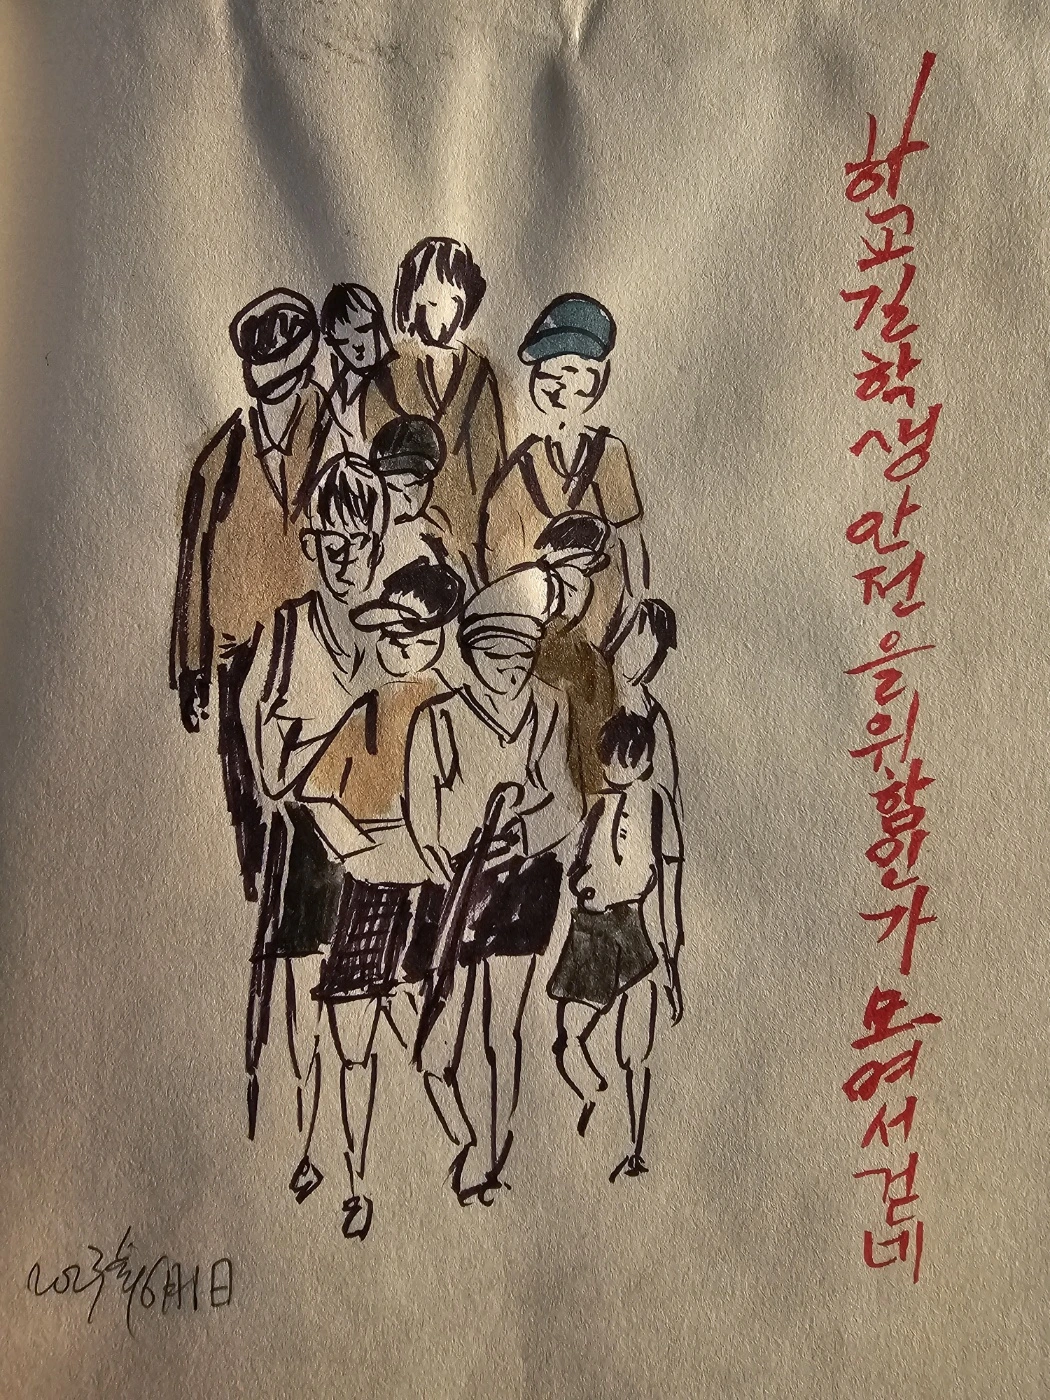 하교길학생안전을위함인가모여서걷네
2023年6月1日